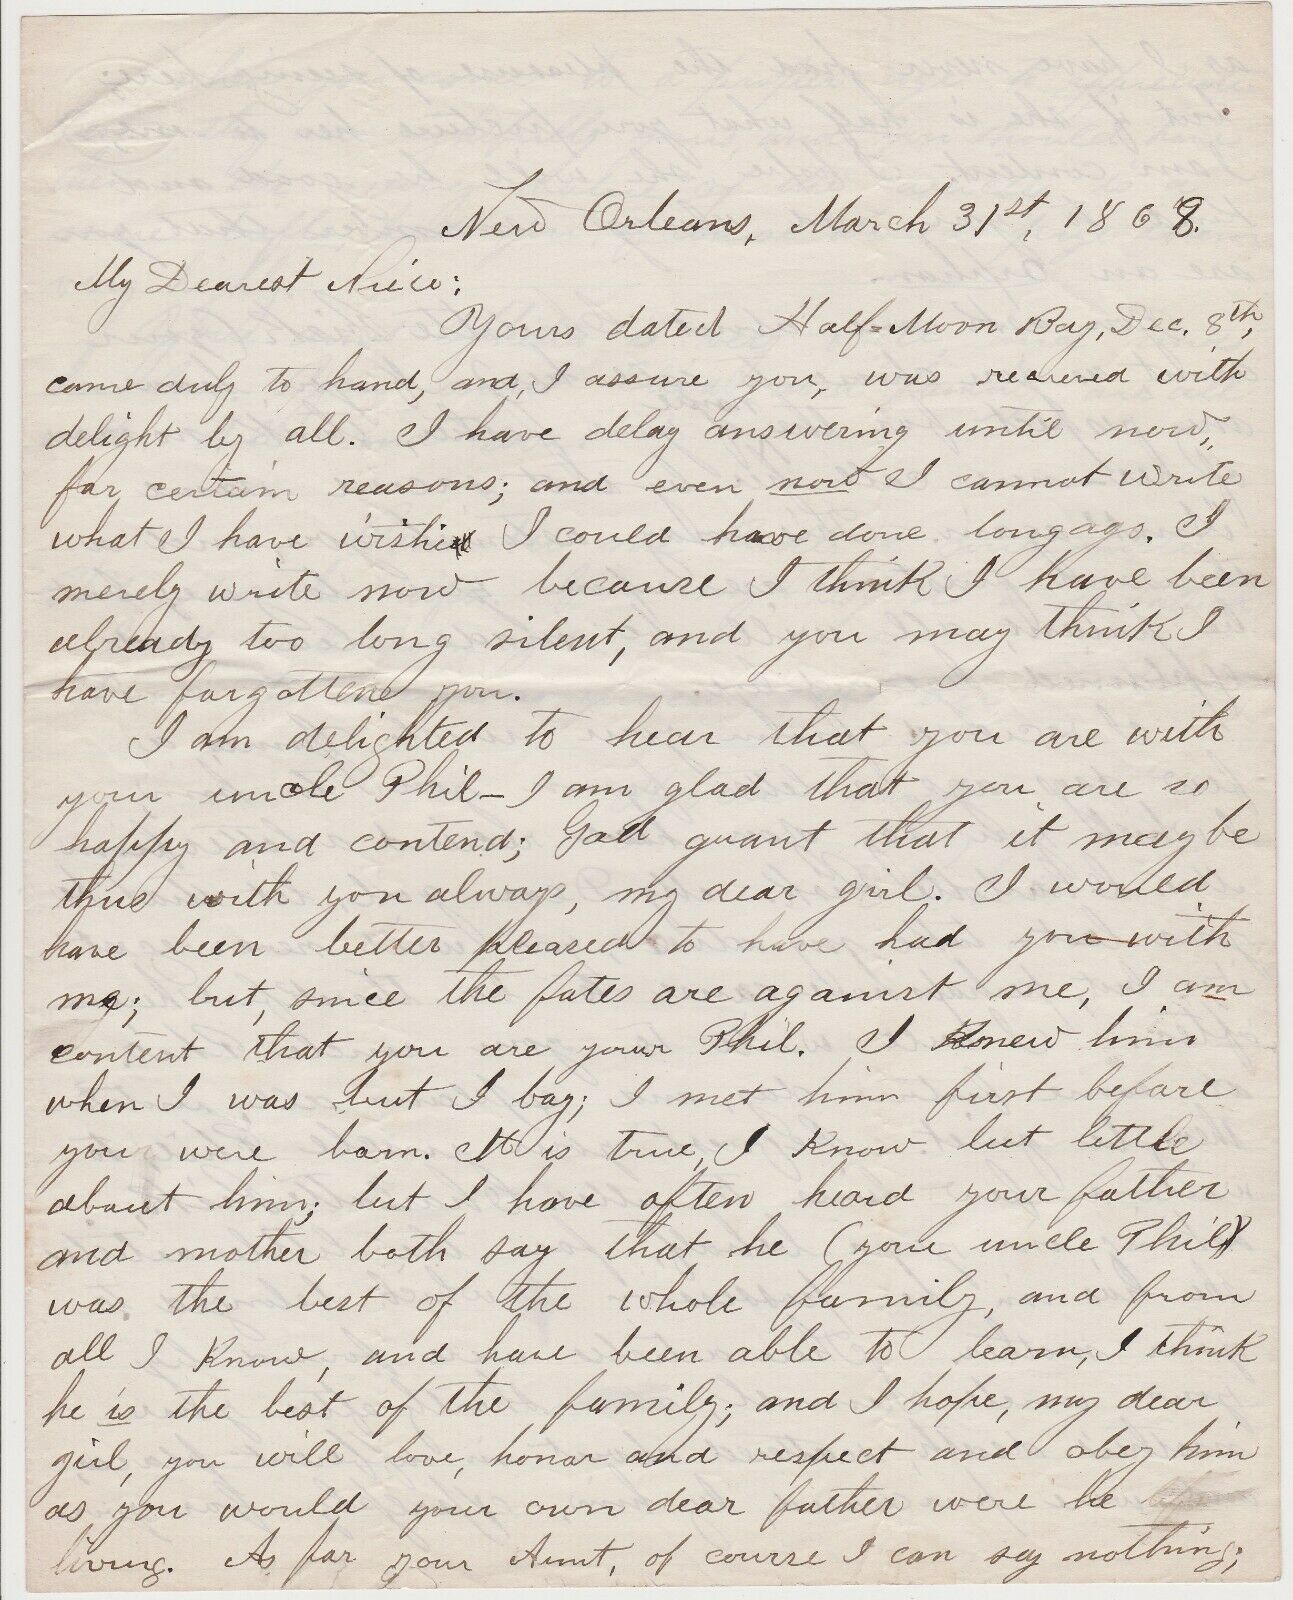 New Orleans, March 31st, 1868.
My Dearest Niece:
Yours dated Half=Moon Bay, Dec. 8th,
came duly to hand, and, I assure you, was received with
delight by all. I have delay answering until now,
for certain reasons; and even now I cannot write
what I have wish I could have done long ago. I
merely write now because I think I have been
already too long silent, and you may think I
have forgotten you.
I am delighted to hear that you are with
your uncle Phil – I am glad that you are so
happy and contend; God grant that it may be
thus with you always, my dear girl. I would
have been better pleased to have had you with
me; but, since the fates are against me, I am
content that you are your Phil. I Knew him
when I was but I boy; I met him first before
you were born. It is true, I Know but little
about him; but I have often heard your father
and mother both say that he (your uncle Phil)
was the best of the whole family, and from
all I Know, and have been able to learn, I think
he is the best of the family; and I hope, my dear
girl, you will love, honor and respect and obey him
as you would your own dear father were he
living. As for your Aunt, of course I can say nothing;